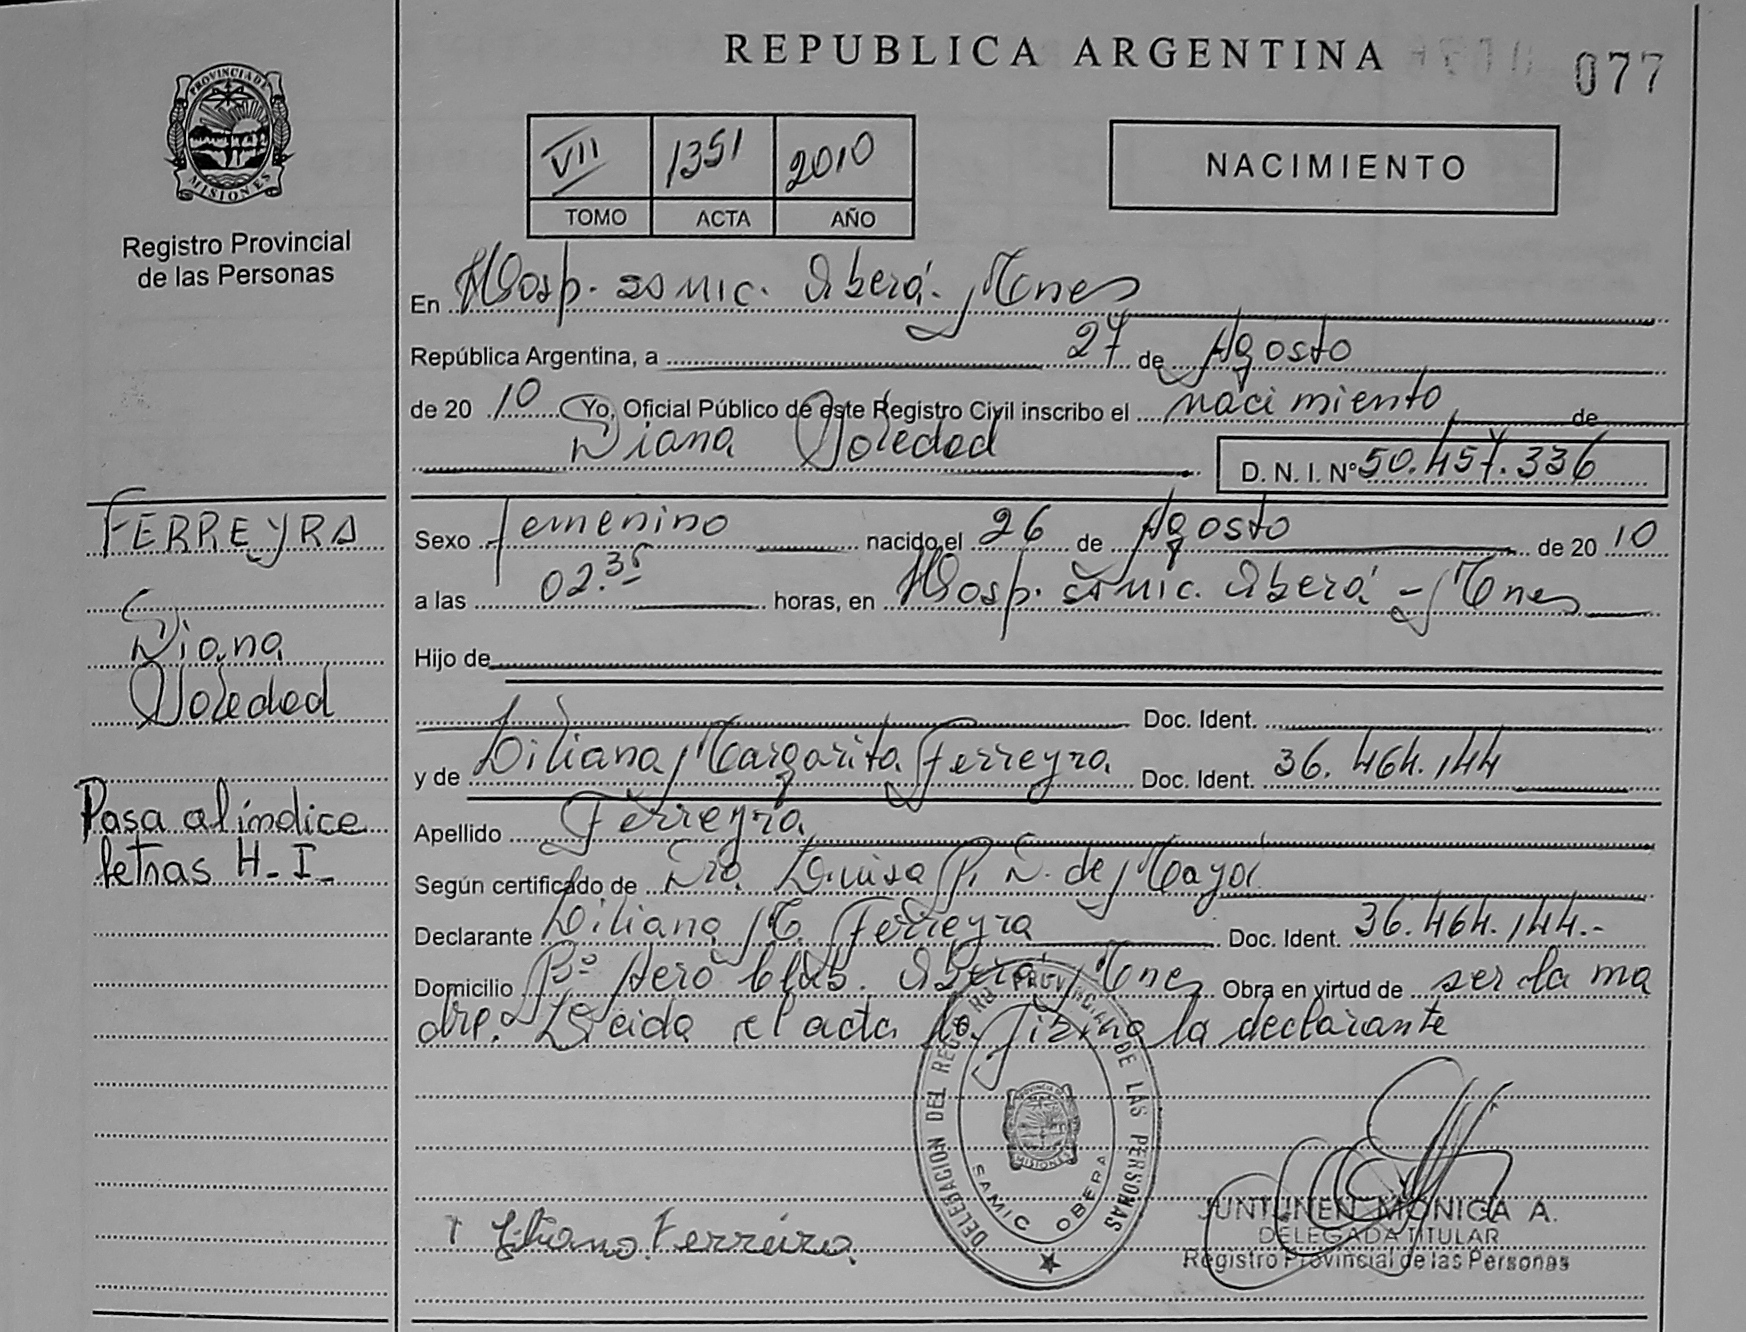 REPUBLICA ARGENTINA
077
PROVINCIA DE
MISIONES
Registro Provincial
de las Personas
VII 1351 2010
TOMO ACTA AÑO
NACIMIENTO
En Hosp. SAMIC. Oberá. Mnes
República Argentina, a 27 de Agosto
de 20 10 Yo, Oficial Público de este Registro Civil inscribo el nacimiento, de
Diana Soledad D. N. I. Nº 50.457.336
FERREYRA
Diana
Soledad
Pasa al índice
letras H-I_
Sexo femenino nacido el 26 de Agosto de 20 10
a las 02.35 horas, en Hosp. SAMIC. Oberá - Mnes
Hijo de
Doc. Ident.
y de Liliana Margarita Ferreyra Doc. Ident. 36.464.144
Apellido Ferreyra
Según certificado de Dra. Luisa P. N. de Mayol
Declarante Liliana M. Ferreyra Doc. Ident. 36.464.144.-
Domicilio Bº Aero Club. Oberá, Mnes Obra en virtud de ser la ma
dre. Leida el acta la firma la declarante
DELEGACION DEL REGISTRO PROVINCIAL DE LAS PERSONAS
PROVINCIA DE
MISIONES
SAMIC OBERA
Liliana Ferreira
JUNTUNEN MONICA A.
DELEGADA TITULAR
Registro Provincial de las Personas